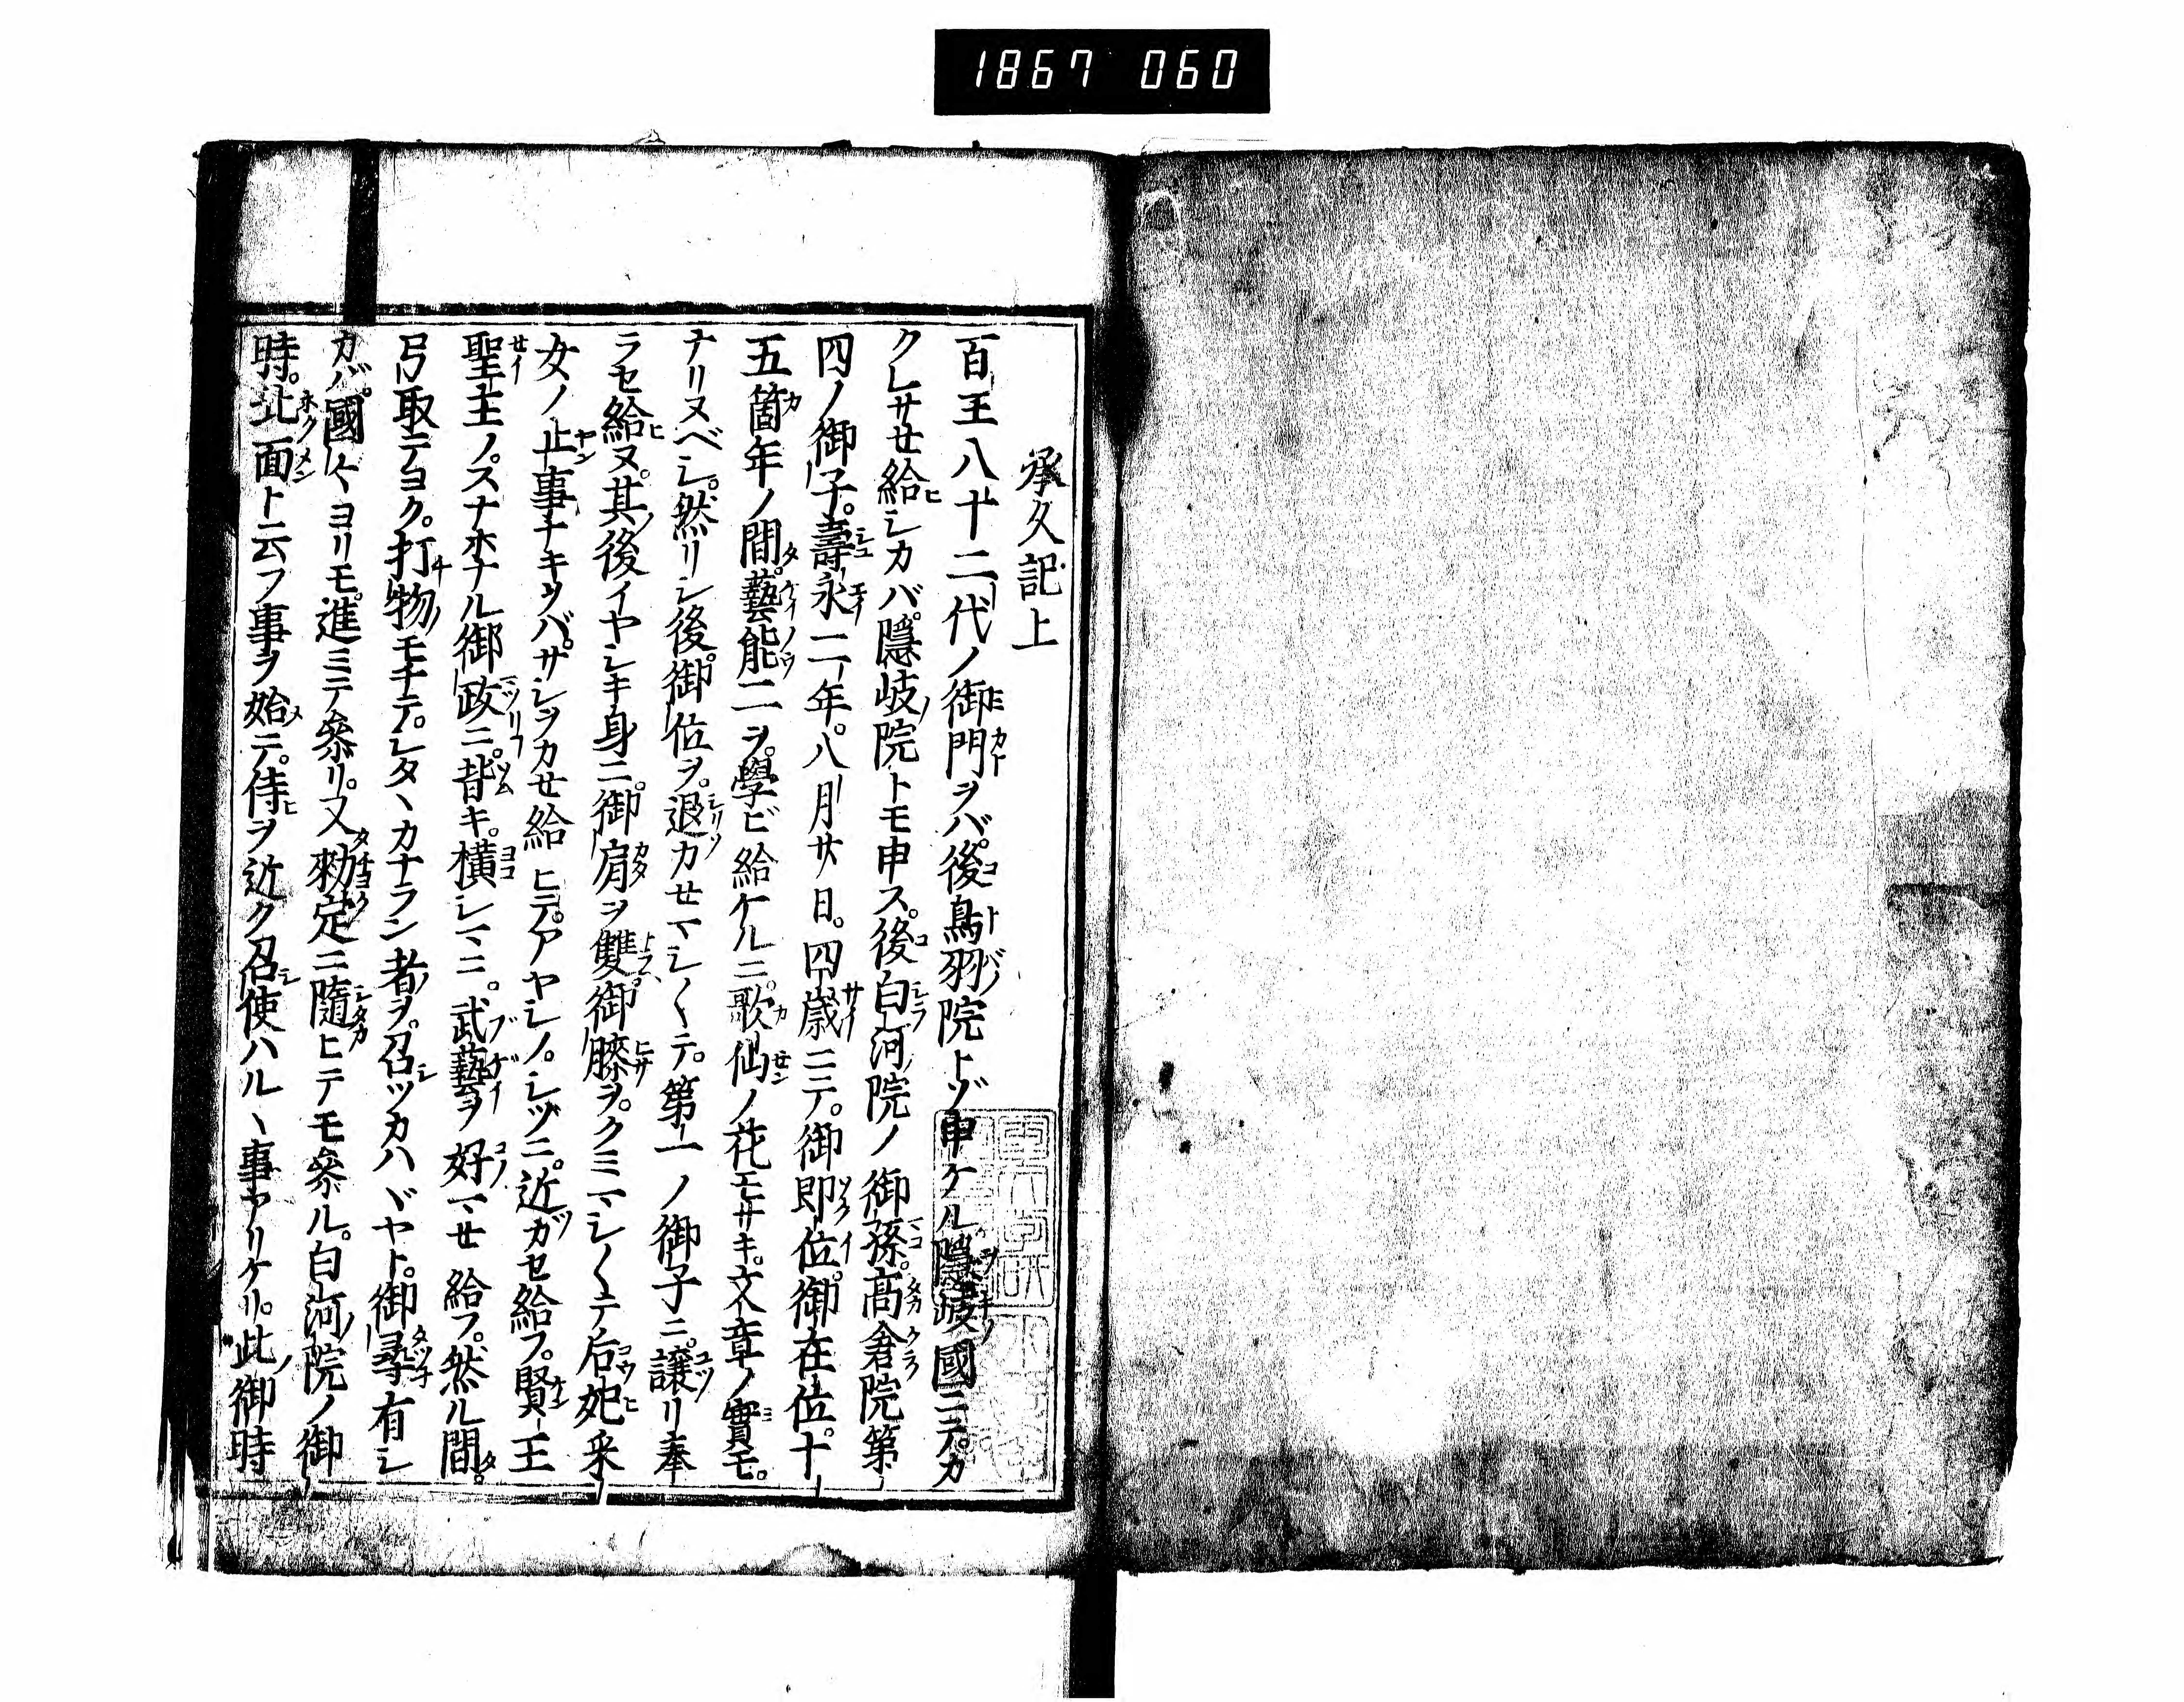 1867 060
承久記上
百王八十二代ノ御門ヲバ後鳥羽院トゾ申ケル隠岐國ニテカ
クレサせ給ヒシカバ隠岐ノ院トモ申ス。後白河ノ院ノ御孫。髙倉院第
四ノ御子。壽永二年。八月廿日。四歳ニテ。御即位。御在位。十
五箇年ノ間。藝能二ヲ。學ビ給ケルニ。歌仙ノ花モサキ。文章ノ實モ。
ナリヌベシ。然リシ後。御位ヲ。退カせマシ〱テ。第一ノ御子ニ。讓リ奉
ラセ給ヒヌ。其ノ後イヤシキ身ニ。御肩ヲ雙。御膝ヲ。クミマシ〱テ。后妃采
女ノ止事ナキヲバ。サシヲカせ給ヒテ。アヤシノ。シヅニ。近ガセ給フ。賢王
聖主ノ。スナホナル御政ニ。背キ。横シマニ。武藝ヲ好マせ給フ。然ル間。
弓取テヨク。打物モチテ。シタヽカナラン者ヲ。召シツカハヾヤト。御尋有シ
カバ。國〱ヨリモ。進ミテ参リ。又勅定ニ隨ヒテモ参ル。白河ノ院ノ御
時。北面ト云フ事ヲ始メテ。侍ヒヲ近ク召シ使ハルヽ事ヤリケリ。此ノ御時